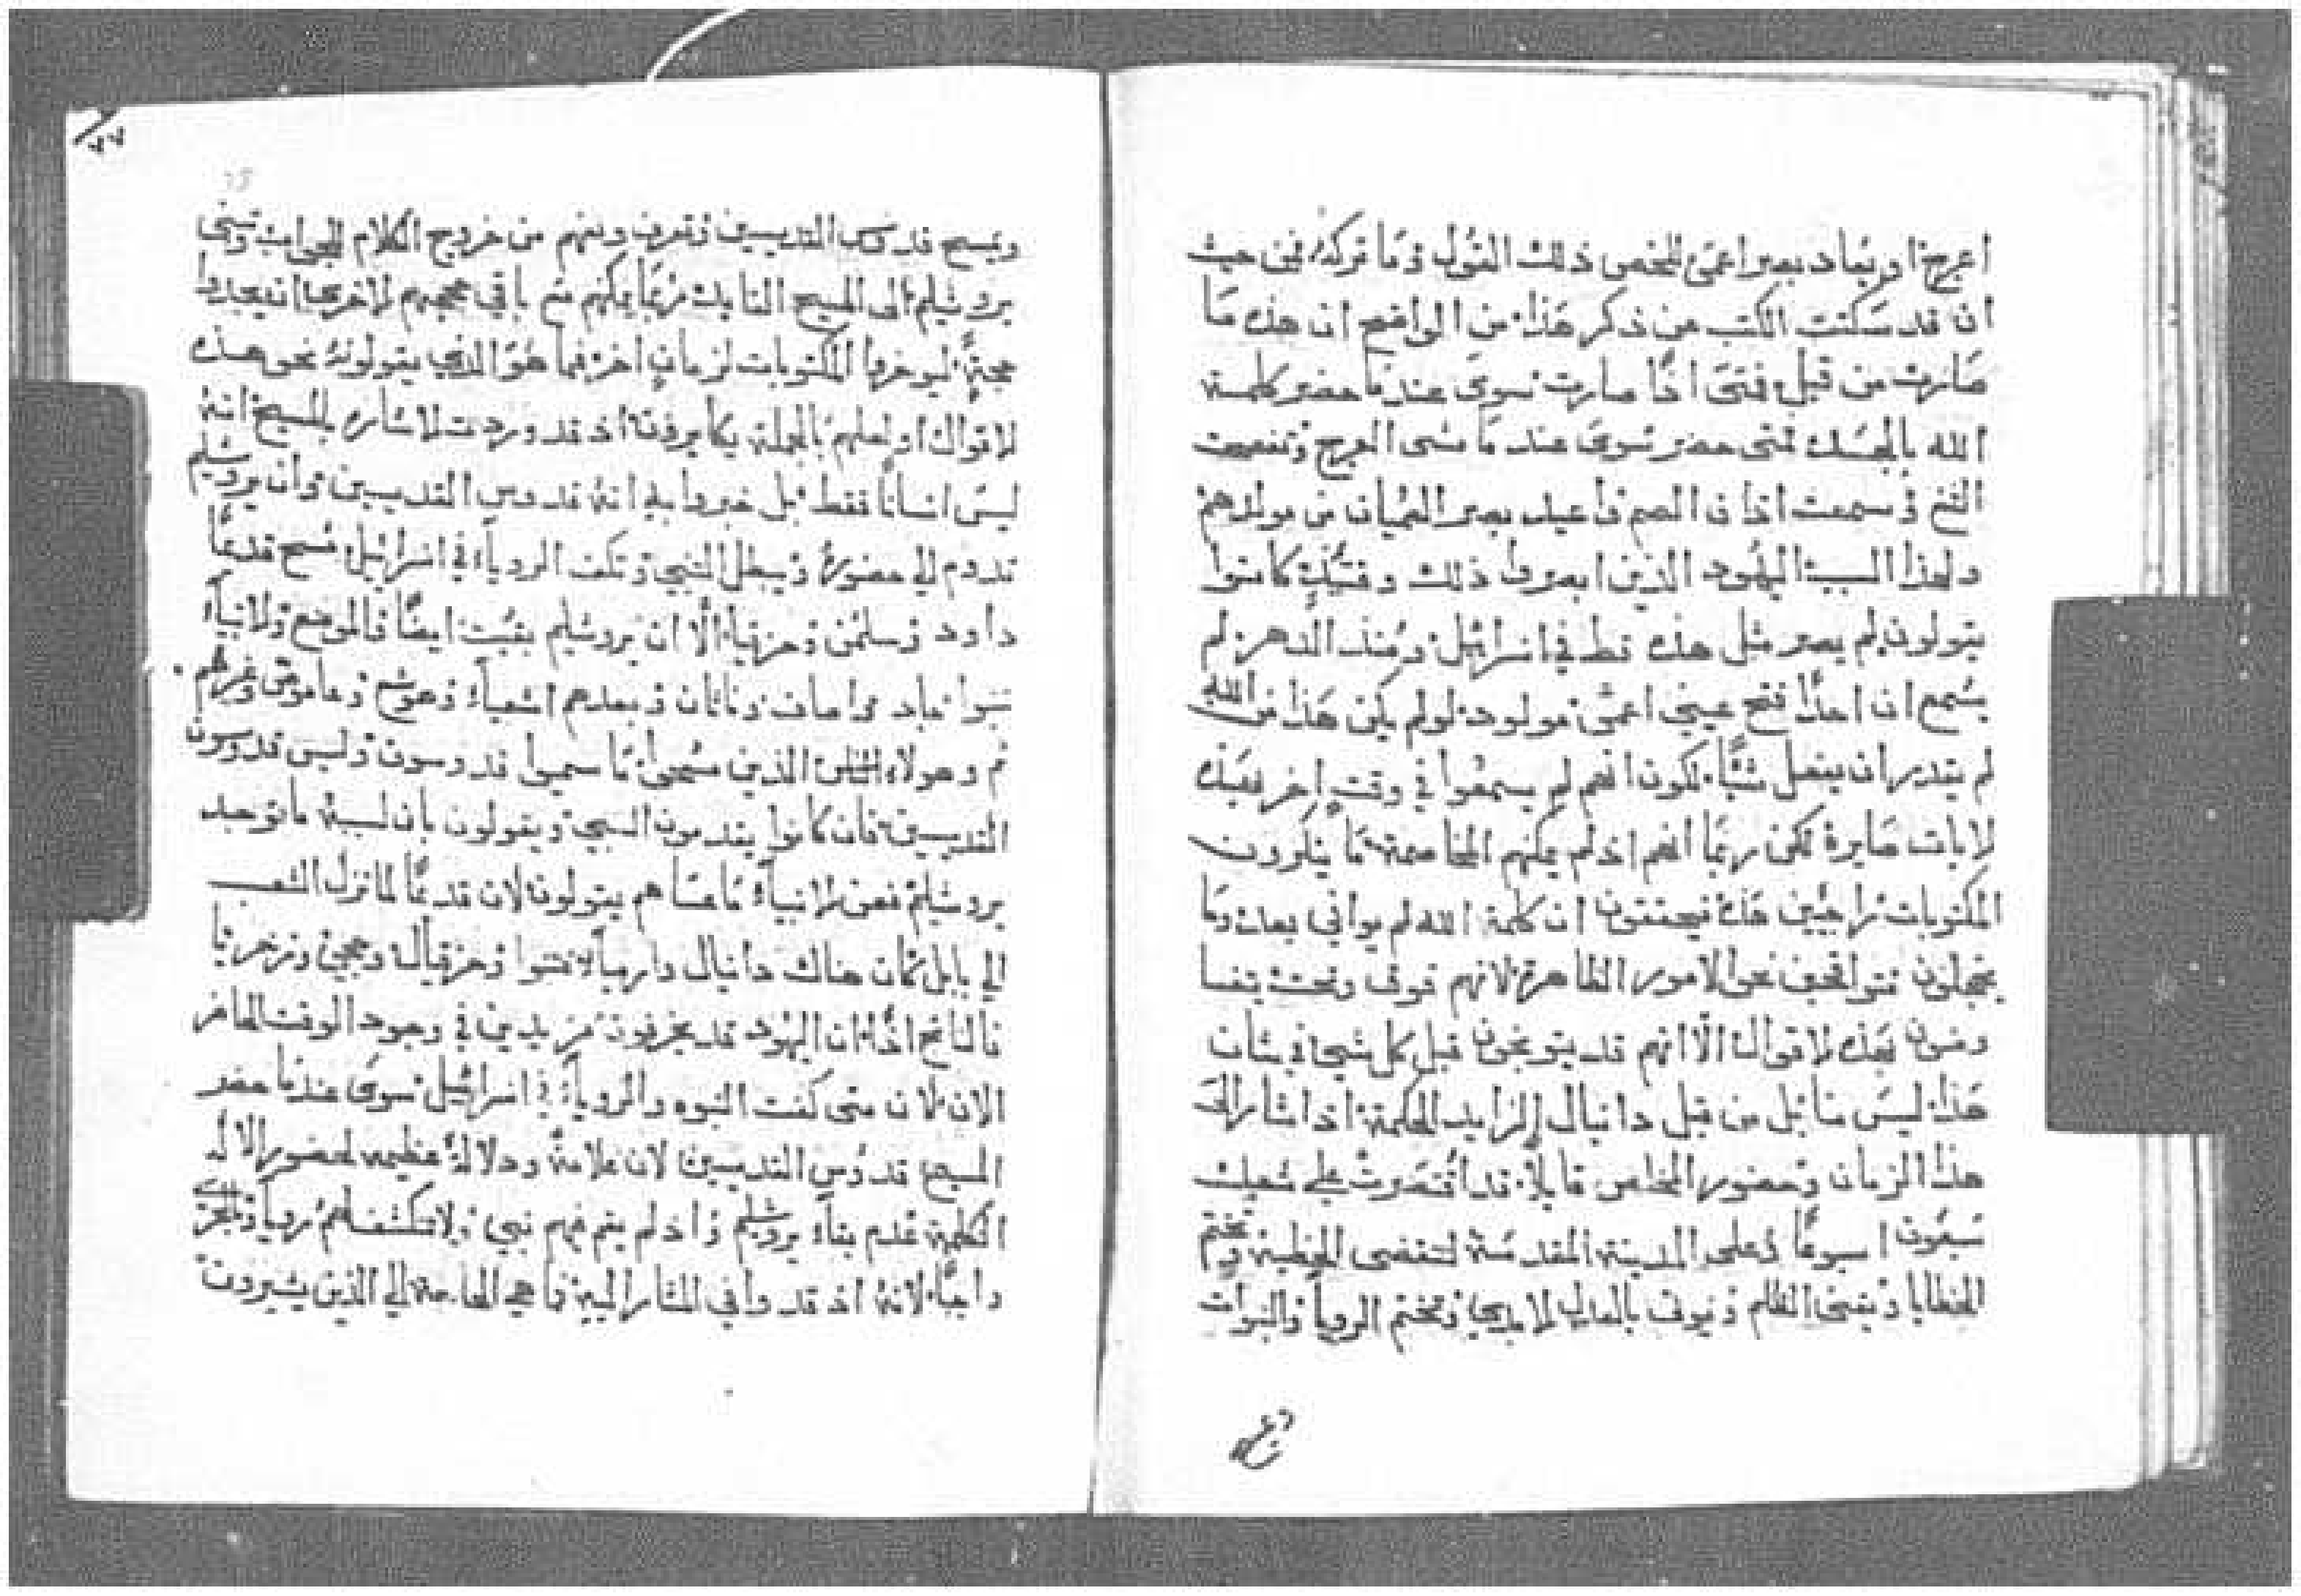 اعرج او يعاد بصر اعمى للخص ذلك القول وما تركه فمن حيث
ان قد سكتت الكتب عن ذكر هذا من الواضح ان هذه ما
صارت من قبل فمتى اذًا صارت سوى عندما حضر كلمة
الله بالجسد متى حضر سوى عند ما مشى العرج وتفصحت
اللثغ وسمعت اذان الصم واعيد بصر العميان من مولدهم
ولهذا السبب اليهود الذين ابصروا ذلك وقتيذٍ كانوا
يقولون لم يصر مثل هذه قط في اسرائيل ومنذ الدهر لم
يسمع ان احدًا فتح عيني اعمى مولود لو لم يكن هذا من الله
لم يقدر ان يفعل شيًّا لكون انهم لم يسمعوا في وقتٍ اخر بهذه
لايات صايرة لكن ربما انهم اذ لم يمكنهم المخاصمة ما ينكرون
المكتوبات راجيين هذه فيحققون ان كلمة الله لم يوافي بعد وما
يخجلون نحو الامور الظاهرة لانهم فوق وتحت يتفا
وضون بهذه لاقوال الا انهم قد يتوبخون قبل كل شي في شان
هذا ليس منا بل من قبل دانيال الزايد الحكمة اذ اشار الى
هذا الزمان وحضور المخلص قايلًا قد اقتصرت على شعبك
سبعون اسبوعًا وعلى المدينة المقدسة لتنقضى الخطية وتختم
الخطايا ويفنى الظلم ويوف بالعدل لابدي وتختم الرويا والنبوات
ويمسح قدوس القديسين وتعرف وتفهم من خروج الكلام للجواب وتبنى
يروشليم الى المسيح القايد ربما يمكنهم مع باقي حججهم لاخرى ان يجدوا
حجةً ليوخروا المكتوبات لزمانٍ اخر فما هو الذي يقولونه نحو هذه
لاقوال او لعلهم بالجملة يكابرون اذ قد وردت لاشاره بالمسيح انه
ليس انسانًا فقط بل خبروا به انه قدوس القديسين وان يروشليم
تدوم الي حضوره ويبطل النبي وتكف الروياء في اسرائيل مسح قدمًا
داود وسلمن وحزقيا الّا ان يروشليم بقيت ايضًا فالموضع ولانبياء
تنبوا جاد واصاف وناثان وبعدهم اشعياء وهوشع وعاموص وغيرهم
ثم وهولاء الذين مسحوا ما سموا قدوسون وليس قدوسون
القديسين فان كانوا يقدمون السبي ويقولون بان لسببه ما توجد
يروشليم فعن لانبياء ما عسا هم يقولون لان قدمًا لما نزل الشعب
الي بابل كان هناك دانيال وارميا لاتنبوا وحزقيال وحجي وزخريا
فالناتج اذًا ان اليهود قد يخرفون مزيدين في وجود الوقت الحاضر
الان لان متى كفت النبوه والروياء في اسرائيل سوى عندما حضر
المسيح قدوس القديسين لان علامة ودلالة عظيمه لحضور الاله
الكلمة عدم بقاء يروشليم واذ لم يقم فيهم نبي ولا تكشف لهم رويا
واجبًا لانه اذ قد وافى المشار اليه فما هي الحاجة الي الذين يشيرون